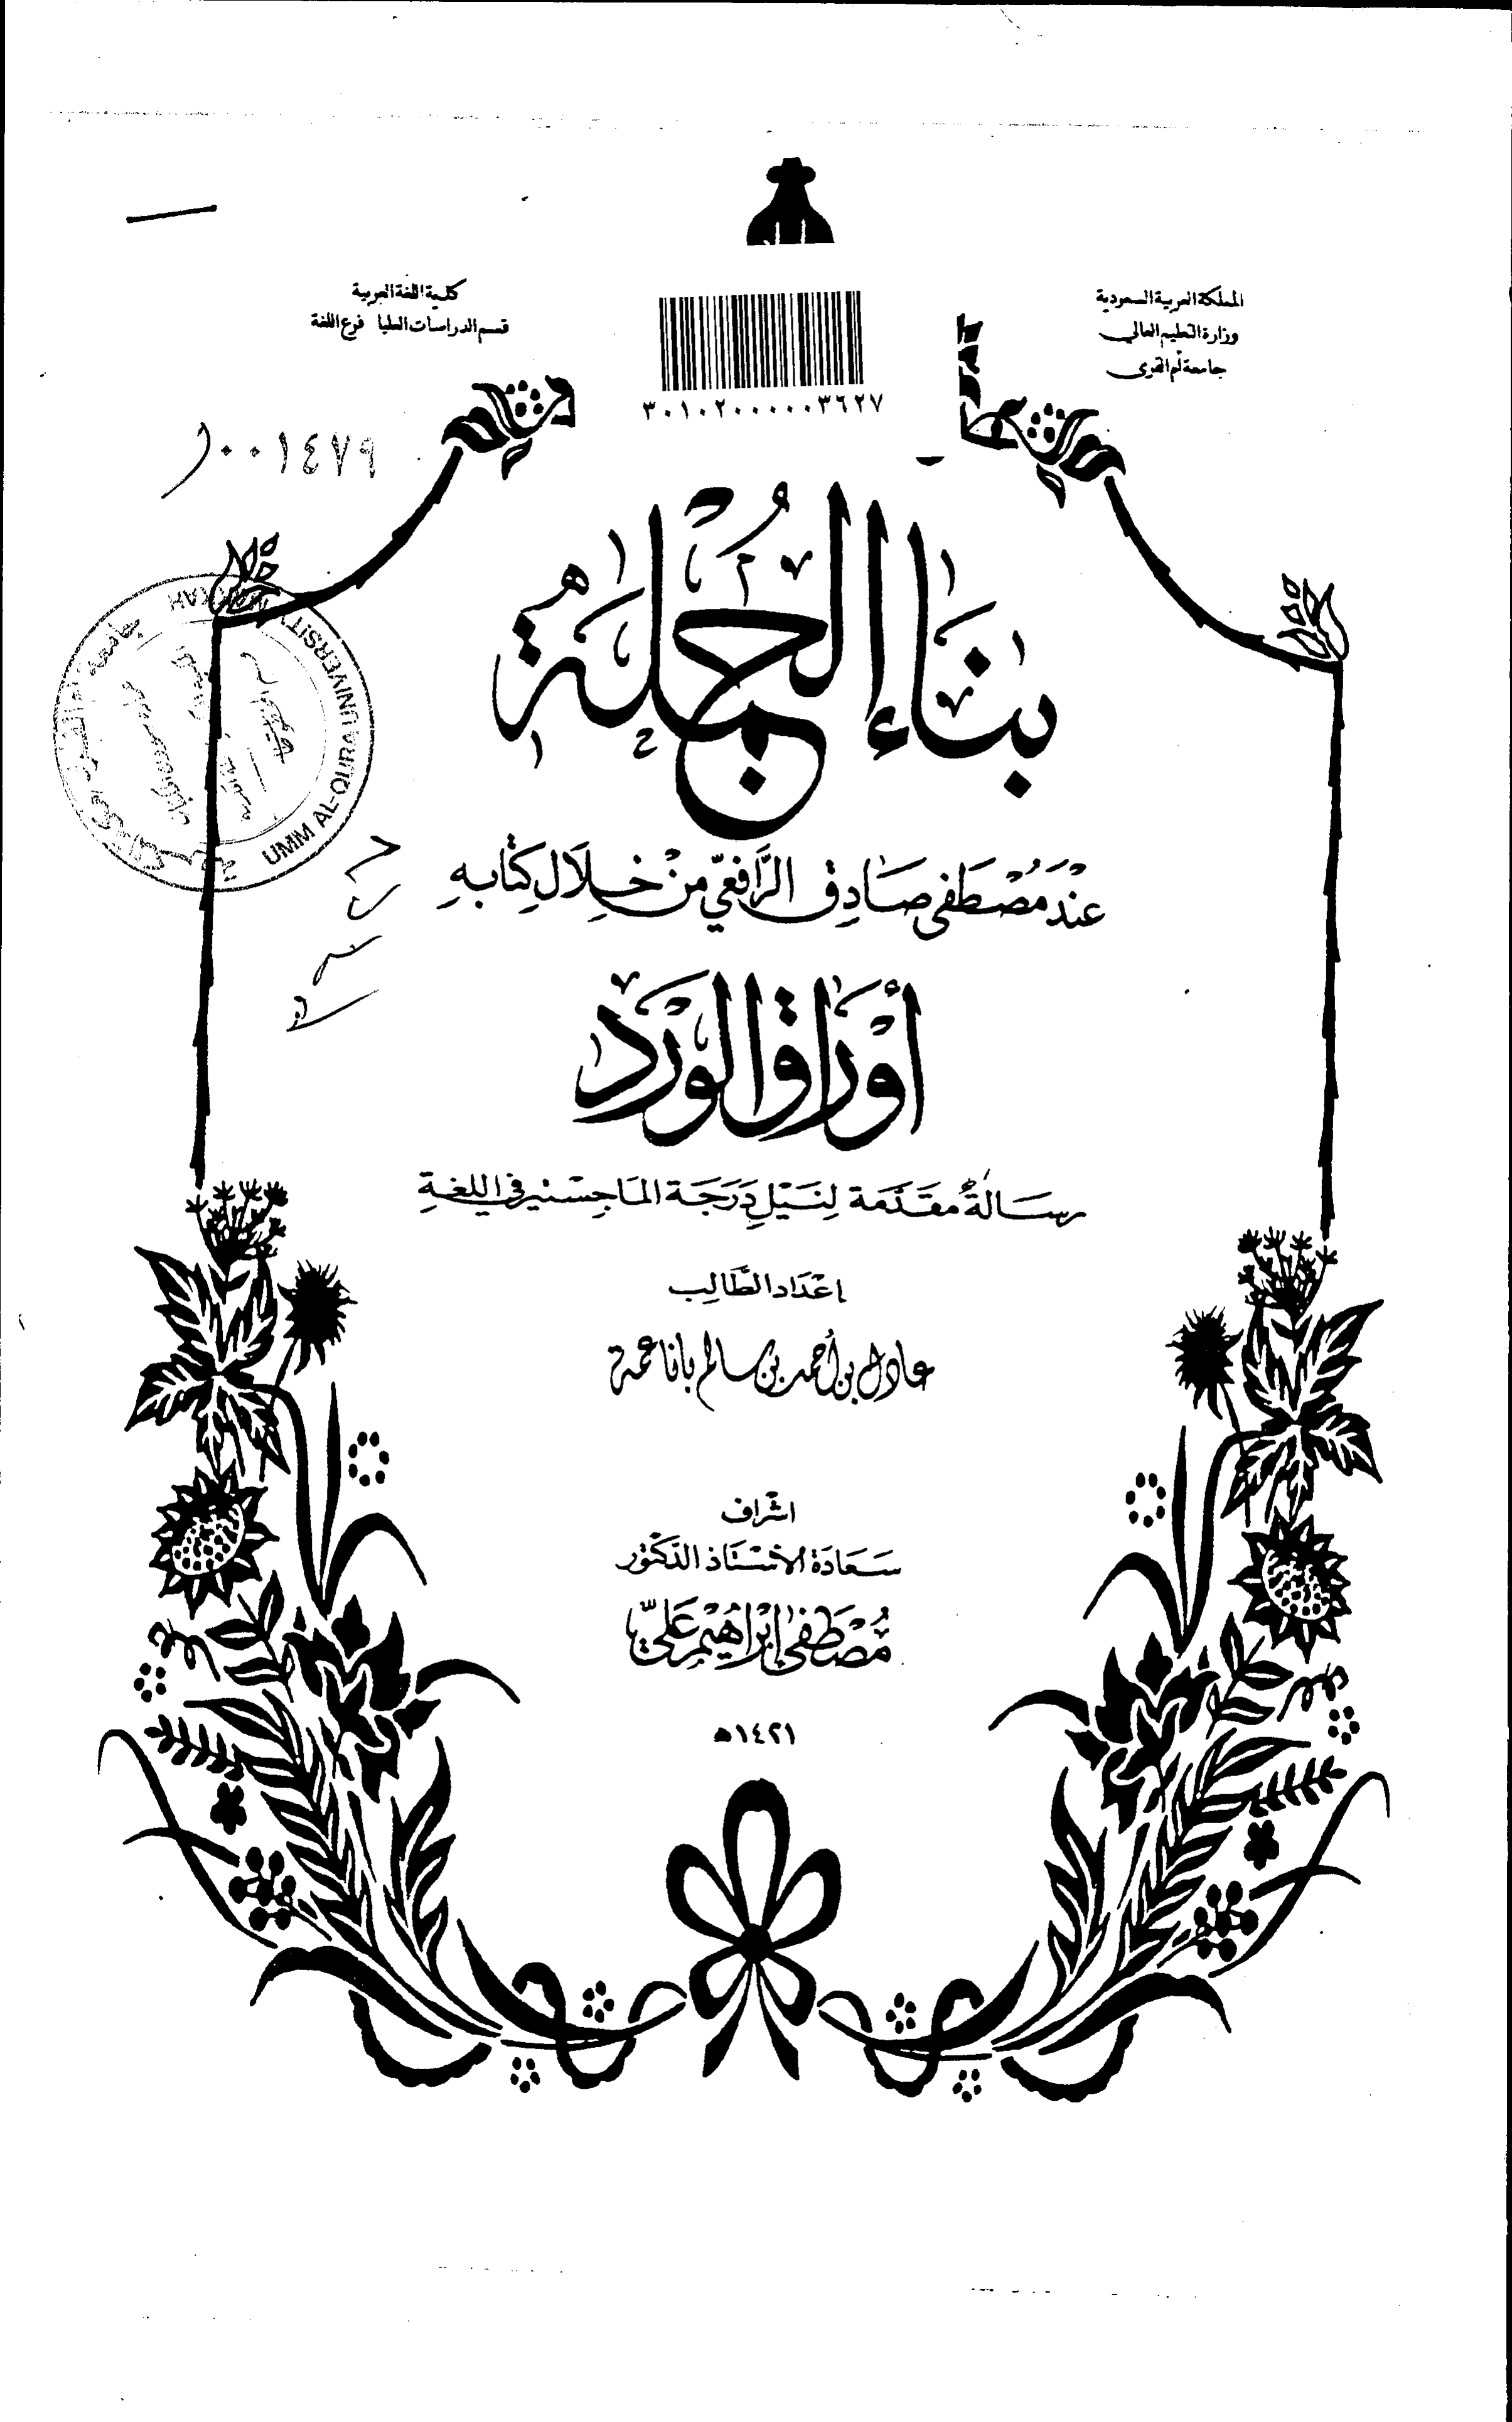 المملكة العربية السعودية
وزارة التعليم العالي
جامعة أم القرى
كلية اللغة العربية
قسم الدراسات العليا فرع اللغة
٣٠١٠٢٠٠٠٠٠٣٦٢٧
٠٠١٤٧٩
بناء الجملة
عند مصطفى صادق الرافعي من خلال كتابه
أوراق الورد
رسالة مقدمة لنيل درجة الماجستير في اللغة
إعداد الطالب
عادل بن أحمد بن سالم باناعمة
اشراف
سعادة الأستاذ الدكتور
مصطفى إبراهيم علي
١٤٢١ه
UMM AL-QURA UNIVERSITY MAKKAH
جامعة أم القرى